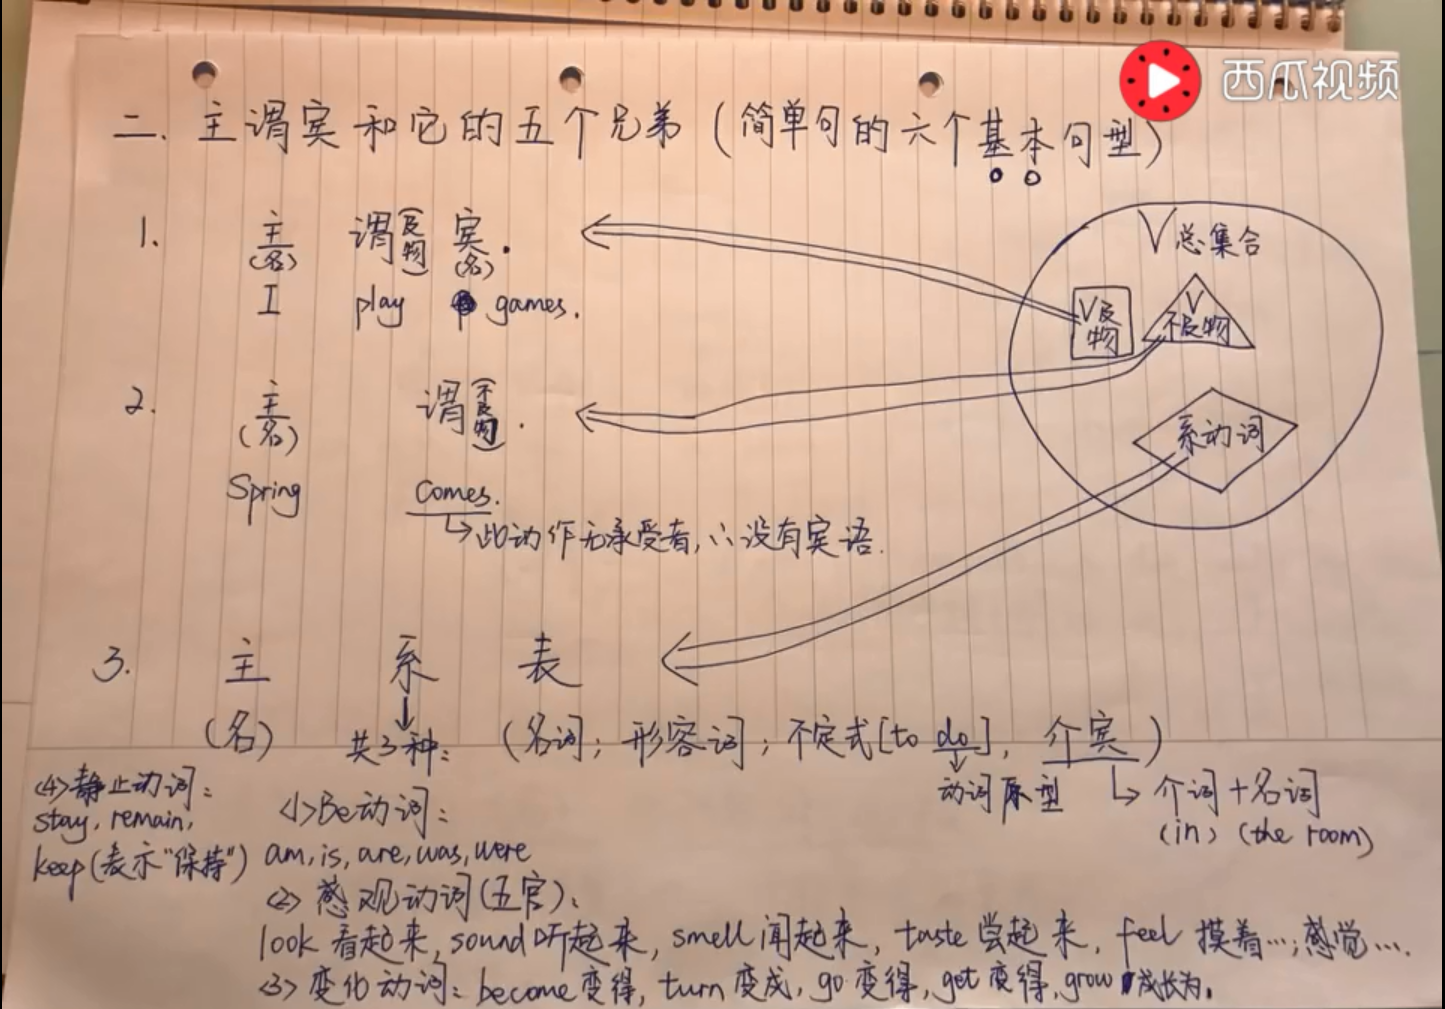 西瓜视频
二. 主谓宾和它的五个兄弟(简单句的六个基本句型)
V总集合
1. 主(名) 谓(及物) 宾(名).
I play games.
V及物
V不及物
2. 主(名) 谓(不及物).
系动词
Spring comes.
此动作无承受者,∴没有宾语.
3. 主 系 表
(名) 共3种: (名词; 形容词; 不定式[to do], 介宾)
动词原型
介词+名词
(in) (the room)
<4>静止动词:
stay, remain,
keep(表示"保持")
<1>Be动词:
am, is, are, was, were
<2>感观动词(五官):
look 看起来, sound 听起来, smell 闻起来, taste 尝起来, feel 摸着…; 感觉….
<3>变化动词: become 变得, turn 变成, go 变得, get 变得, grow 成长为.